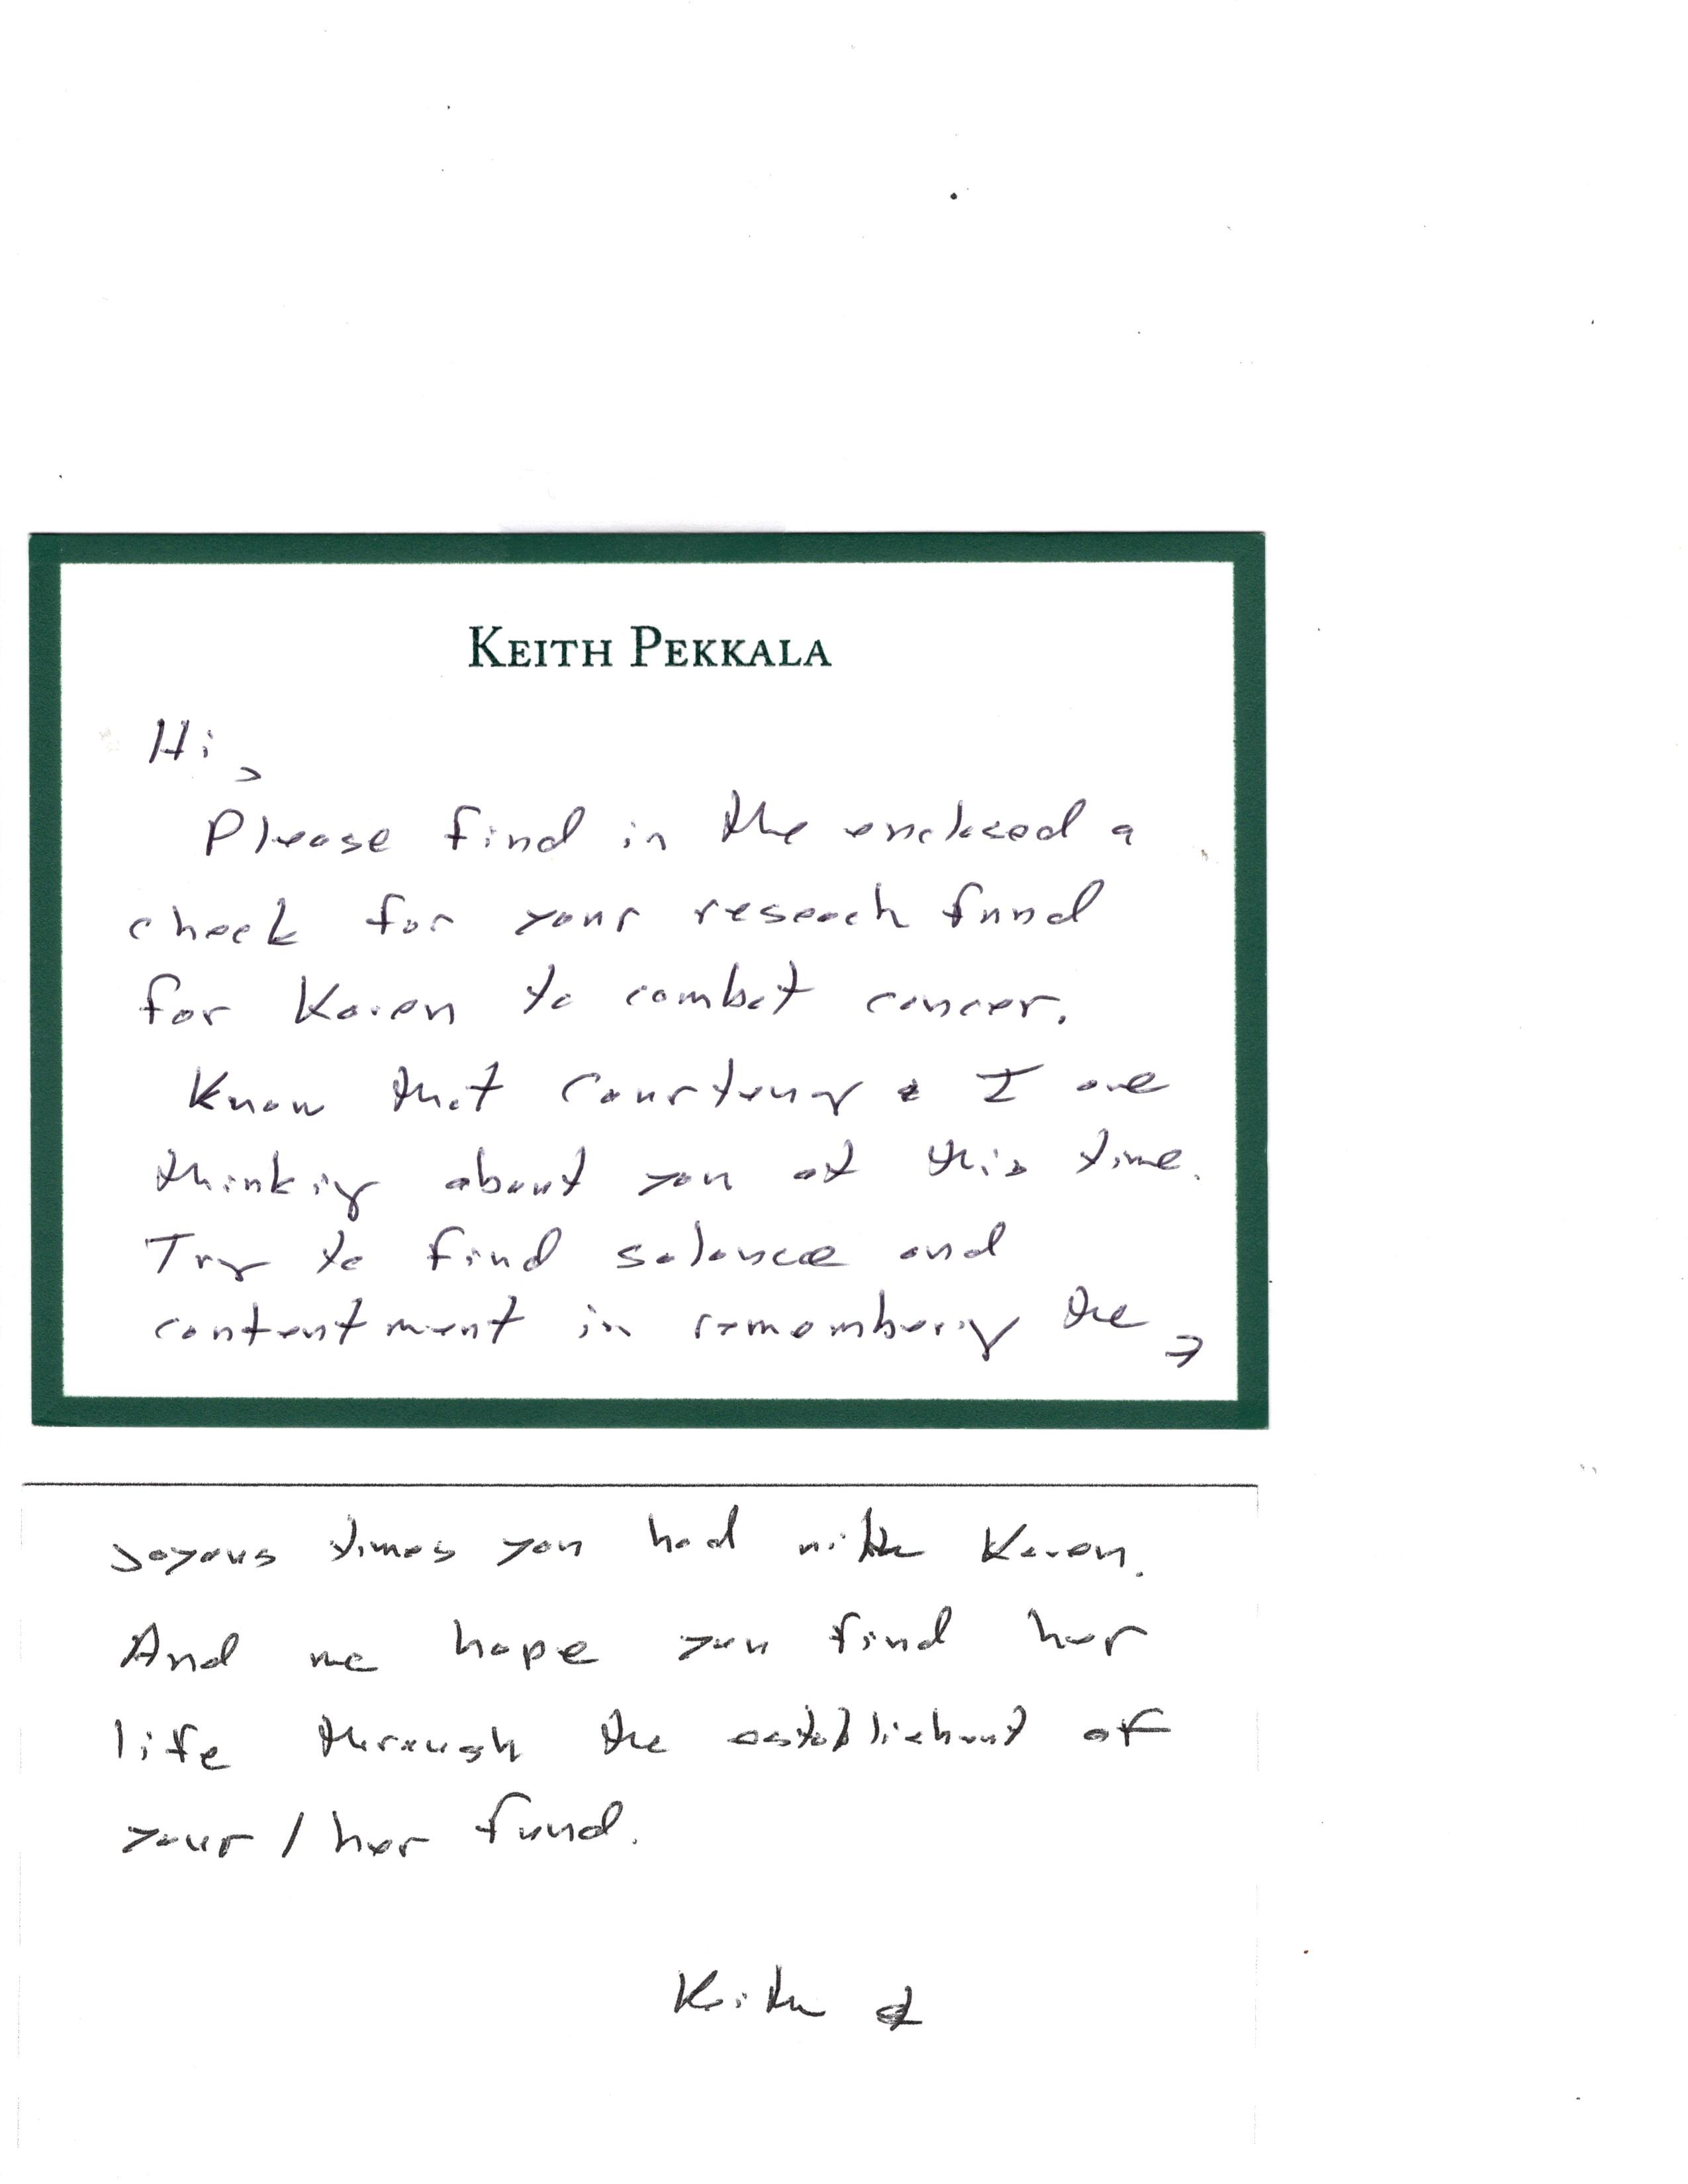 KEITH PEKKALA
Hi,
Please find in the enclosed a
check for your research fund
for Karen to combat cancer.
Know that Courtney & I are
thinking about you at this time.
Try to find solance and
contentment in remembering the →
joyous times you had with Karen.
And we hope you find her
life through the establishment of
your / her fund.
Keith &